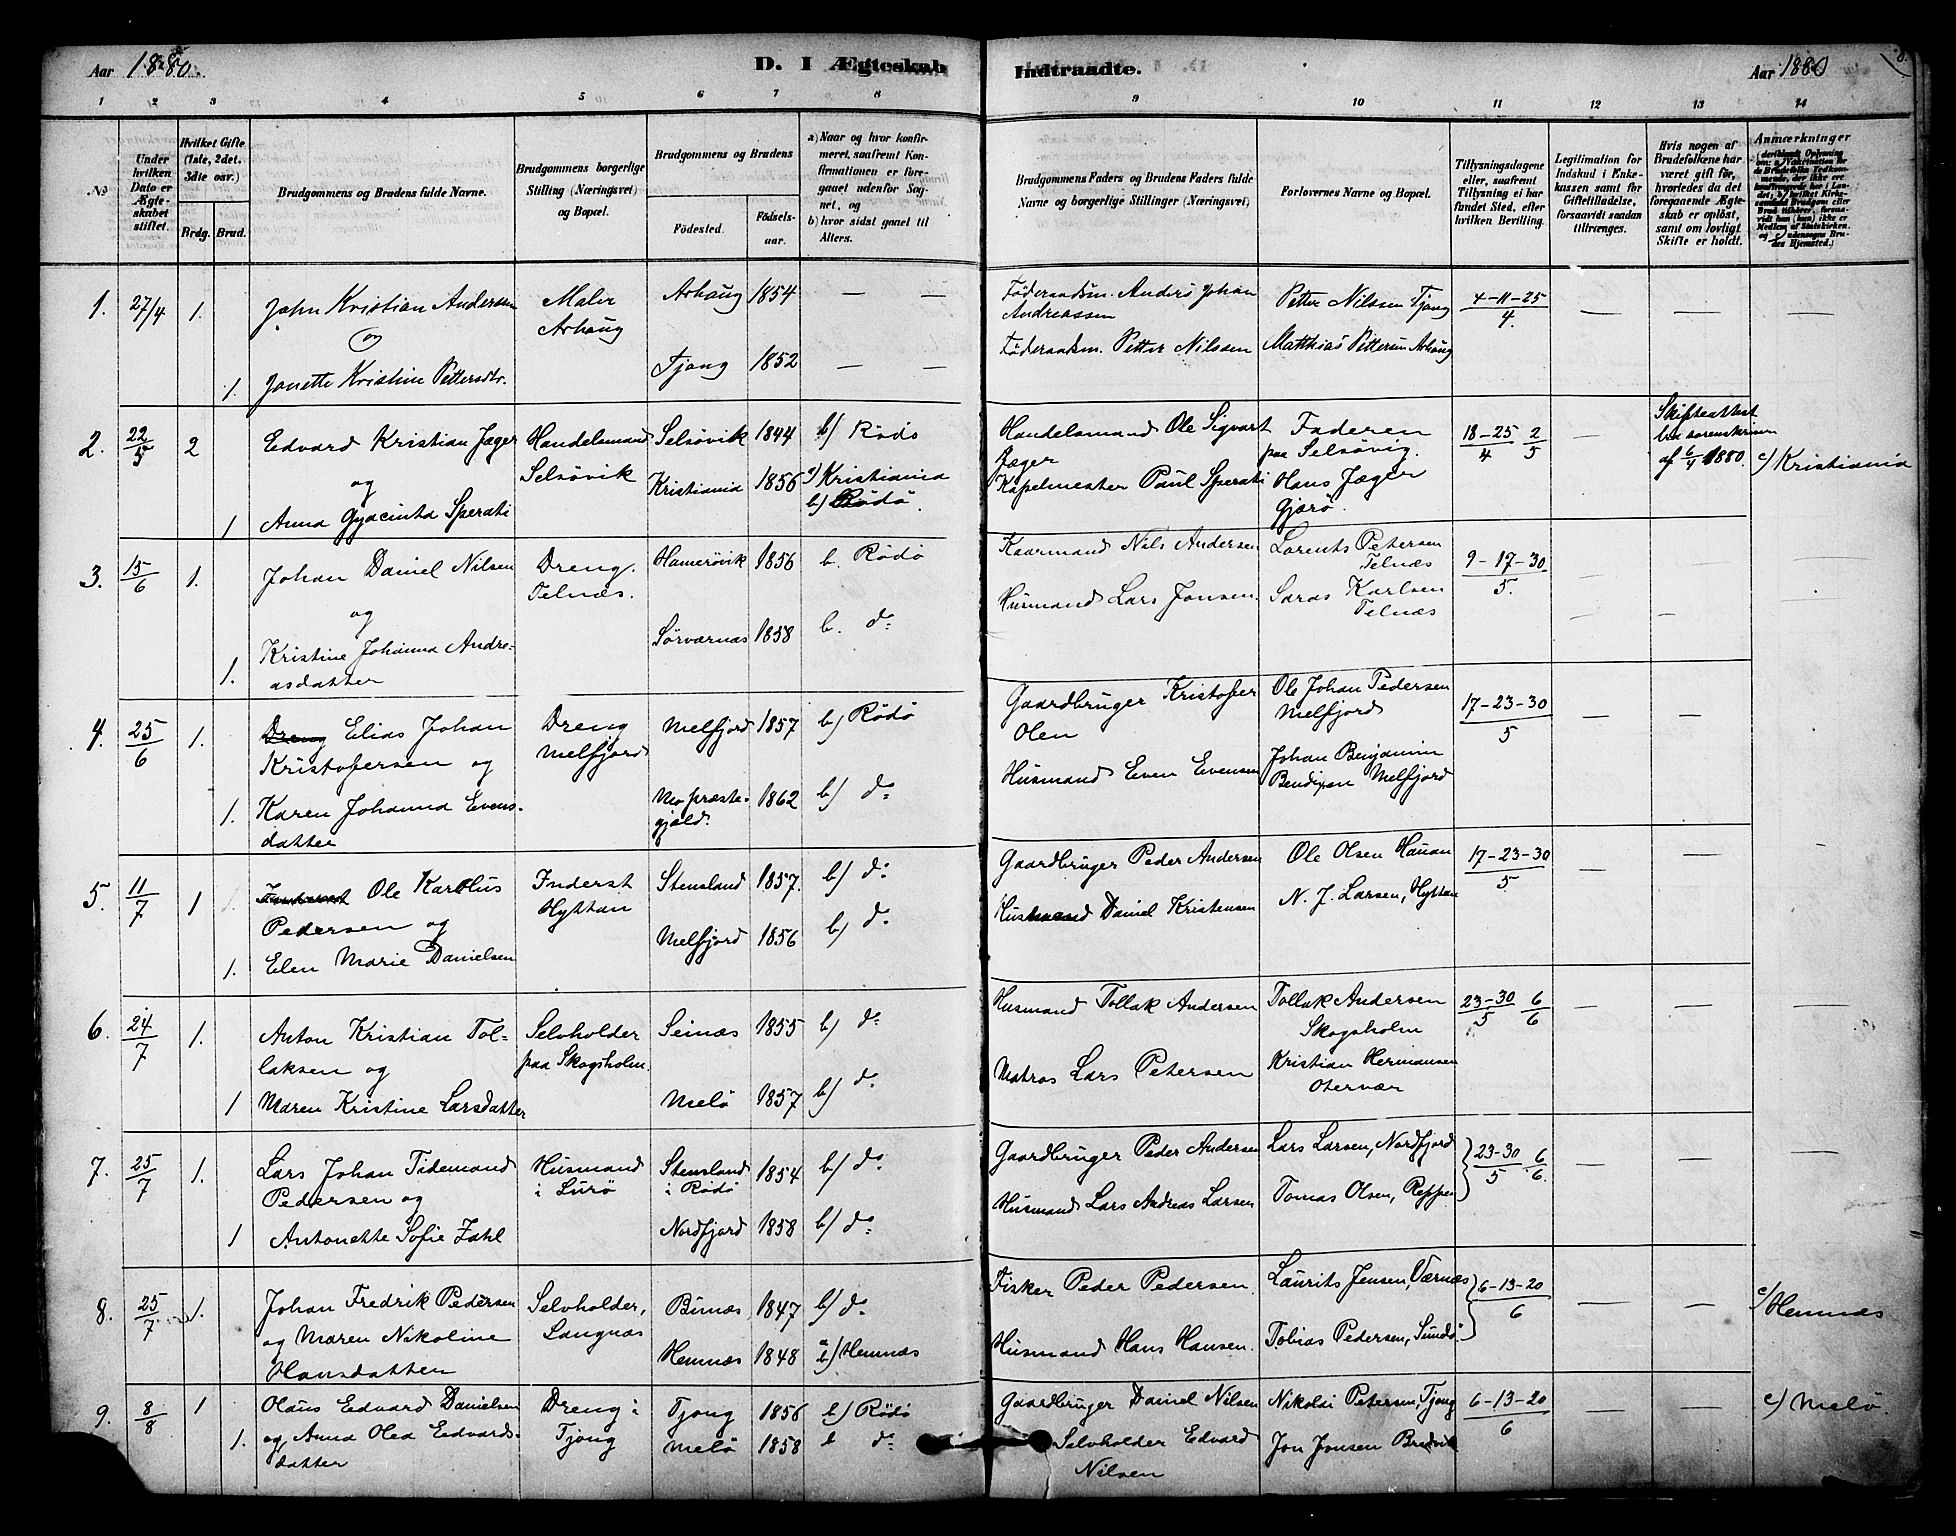 Aar 1880.
D. I Ægteskab
Indtraadte.
Aar 1880
8.
1 2 3 4 5 6 7 8
9 10 11 12 13 14
No
Under hvilken Dato er Ægteskabet stiftet.
Hvilket Gifte (1ste, 2det, 3die osv.)
Brdg. Brud.
Brudgommens og Brudens fulde Navne.
Brudgommens borgerlige Stilling (Næringsvei) og Bopæl.
Brudgommens og Brudens
Fødested.
Fødselsaar.
a) Naar og hvor konfirmeret, saafremt Konfirmationen er foregaaet udenfor Sognet, og
b) hvor sidst gaaet til Alters.
Brudgommens Faders og Brudens Faders fulde Navne og borgerlige Stillinger (Næringsvei)
Forlovernes Navne og Bopæl.
Tillysningsdagene eller, saafremt Tillysning ei har fundet Sted, efter hvilken Bevilling.
Legitimation for Indskud i Enkekassen samt for Giftetilladelse, forsaavidt saadan tiltrænges.
Hvis nogen af Brudefolkene har været gift før, hvorledes da det foregaaende Ægteskab er opløst, samt om lovligt Skifte er holdt.
Anmærkninger
1. 27/4 1. John Kristian Andersen Maler Arhaug Arhaug 1854 — —
og
1. Janette Kristine Pettersdtr. Tjong 1852 — —
Føderaadsm. Anders Johan Andreassen Petter Nilssen Tjong 4-11-25/4. — — —
Føderaadsm. Petter Nilssen Matthias Pettersen Arhaug
2. 22/5 2 Edvard Kristian Jæger Handelsmand Selsövik Selsövik 1844 b/ Rödö
og
1 Anna Gyacinta Sperati Kristiania 1856 a) Kristiania b) Rödö.
Handelsmand Ole Sigvart Jæger Faderen paa Selsövig. 18-25/4 2/5 — Skifteattest fra sorenskriver af 6/4 1880. c) Kristiania
Kapelmester Paul Sperati Hans Jæger Gjärö.
3. 15/6 1. Johan Daniel Nilsen Dreng. Telnæs. Hamerövik 1856 b. Rödö
og
1. Kristine Johanna Andreasdatter Sörværnæs 1858 b. do
Kaarmand Nils Andersen Lorents Petersen Telnæs 9-17-30/5. — — —
Husmand Lars Jonsen. Saras Karlsen Telnæs — —
4. 25/6 1. Dreng Elias Johan Kristofersen og Dreng Melfjord Melfjord 1857 b) Rödö
1. Karen Johanna Evensdatter Mo præstegjæld. 1862 b) do
Gaardbruger Kristofer Olen Ole Johan Pedersen Melfjord 17-23-30/5 — —
Husmand Even Evensen Johan Benjamin Bendixen Melfjord
5. 11/7 1 Ole Karolus Pedersen og Inderst Hyttan Stensland 1857. b) do
1. Elen Marie Danielsen Melfjord 1856 b) do
Gaardbruger Peder Andersen Ole Olsen Hauan 17-23-30/5 — — —
Husmand Daniel Kristensen N. J. Larsen, Hyttan
6. 24/7 1. Anton Kristian Tollaksen og Selvholder paa Skogsholm. Seinæs 1855 b) do
1 Maren Kristine Larsdatter Melö 1857 b) do
Husmand Tollak Andersen Tollak Andersen Skogsholm 23-30/5 6/6 — — —
Matros Lars Petersen Kristian Hermansen Otervær
7. 25/7 1. Lars Johan Tidemand Pedersen og Husmand i Lurö Stensland i Rödö 1854 b) do
1 Antonette Sofie Zahl Nordfjord 1858 b) do
Gaardbruger Peder Andersen Lars Larsen, Nordfjord 23-30/5 6/6. — — —
Husmand Lars Andreas Larsen Tomas Olsen, Reppen
8. 25/7 1. Johan Fredrik Pedersen Selvholder, Langnæs Birnæs 1847 b) do
og Maren Nikoline Hansdatter Hemnæs 1848 a b) Hemnæs
Fisker Peder Pedersen. Laurits Jensen, Værnæs 6-13-20/6 — — c/ Hemnæs
Husmand Hans Hansen. Tobias Pedersen, Sundö
9. 8/8 1 Olaus Edvard Danielsen Dreng i Tjong Tjong 1856 b) Rödö
1. og Anna Olea Edvardsdatter Melö 1858 b do
Gaardbruger Daniel Nilsen Nikolai Petersen, Tjong 6-13-20/6 — — c) Melö.
Selvholder Edvard Nilsen Jon Jonsen Bredvik